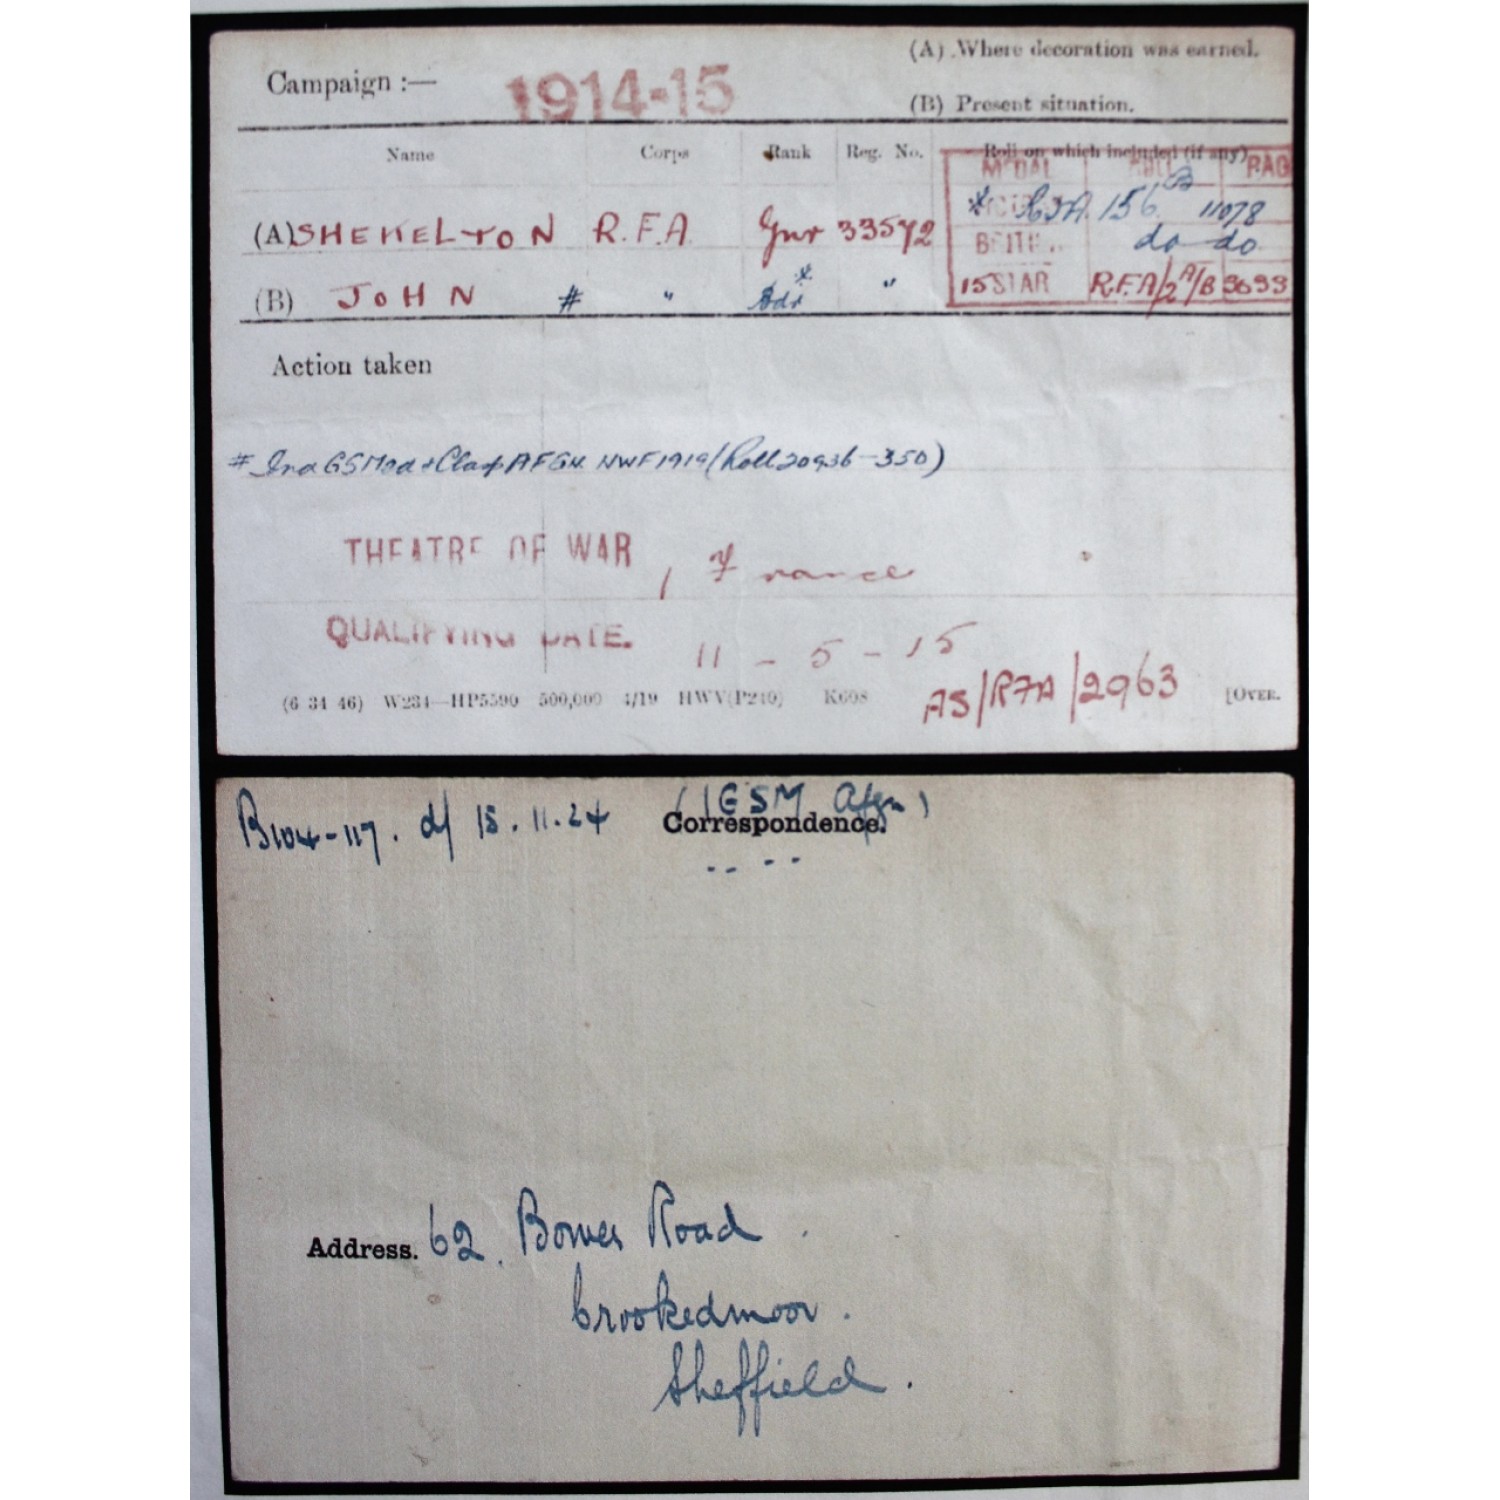 (A) Where decoration was earned.
Campaign :— 1914-15
(B) Present situation.
Name Corps Rank Reg. No. Roll on which included (if any)
MEDAL ROLL PAGE
(A) SHEKELTON R.F.A. Gnr 33572
* VICTORY R.F.A. 156 B 11078
BRITISH do do
(B) JOHN # " Bdr * "
15 STAR R.F.A/2 A/B 3633
Action taken
# Ind GS Med & Clasp AFGN. NWF 1919 (Roll 20936-350)
THEATRE OF WAR , France
QUALIFYING DATE. 11 - 5 - 15
AS/RFA/2963
(6 34 46) W234—HP5590 500,000 4/19 HWV(P240) K608 [OVER.
B104-117. d/ 15.11.24 (IGSM Afgn)
Correspondence.
Address. 62. Bower Road
Crookedmoor.
Sheffield.